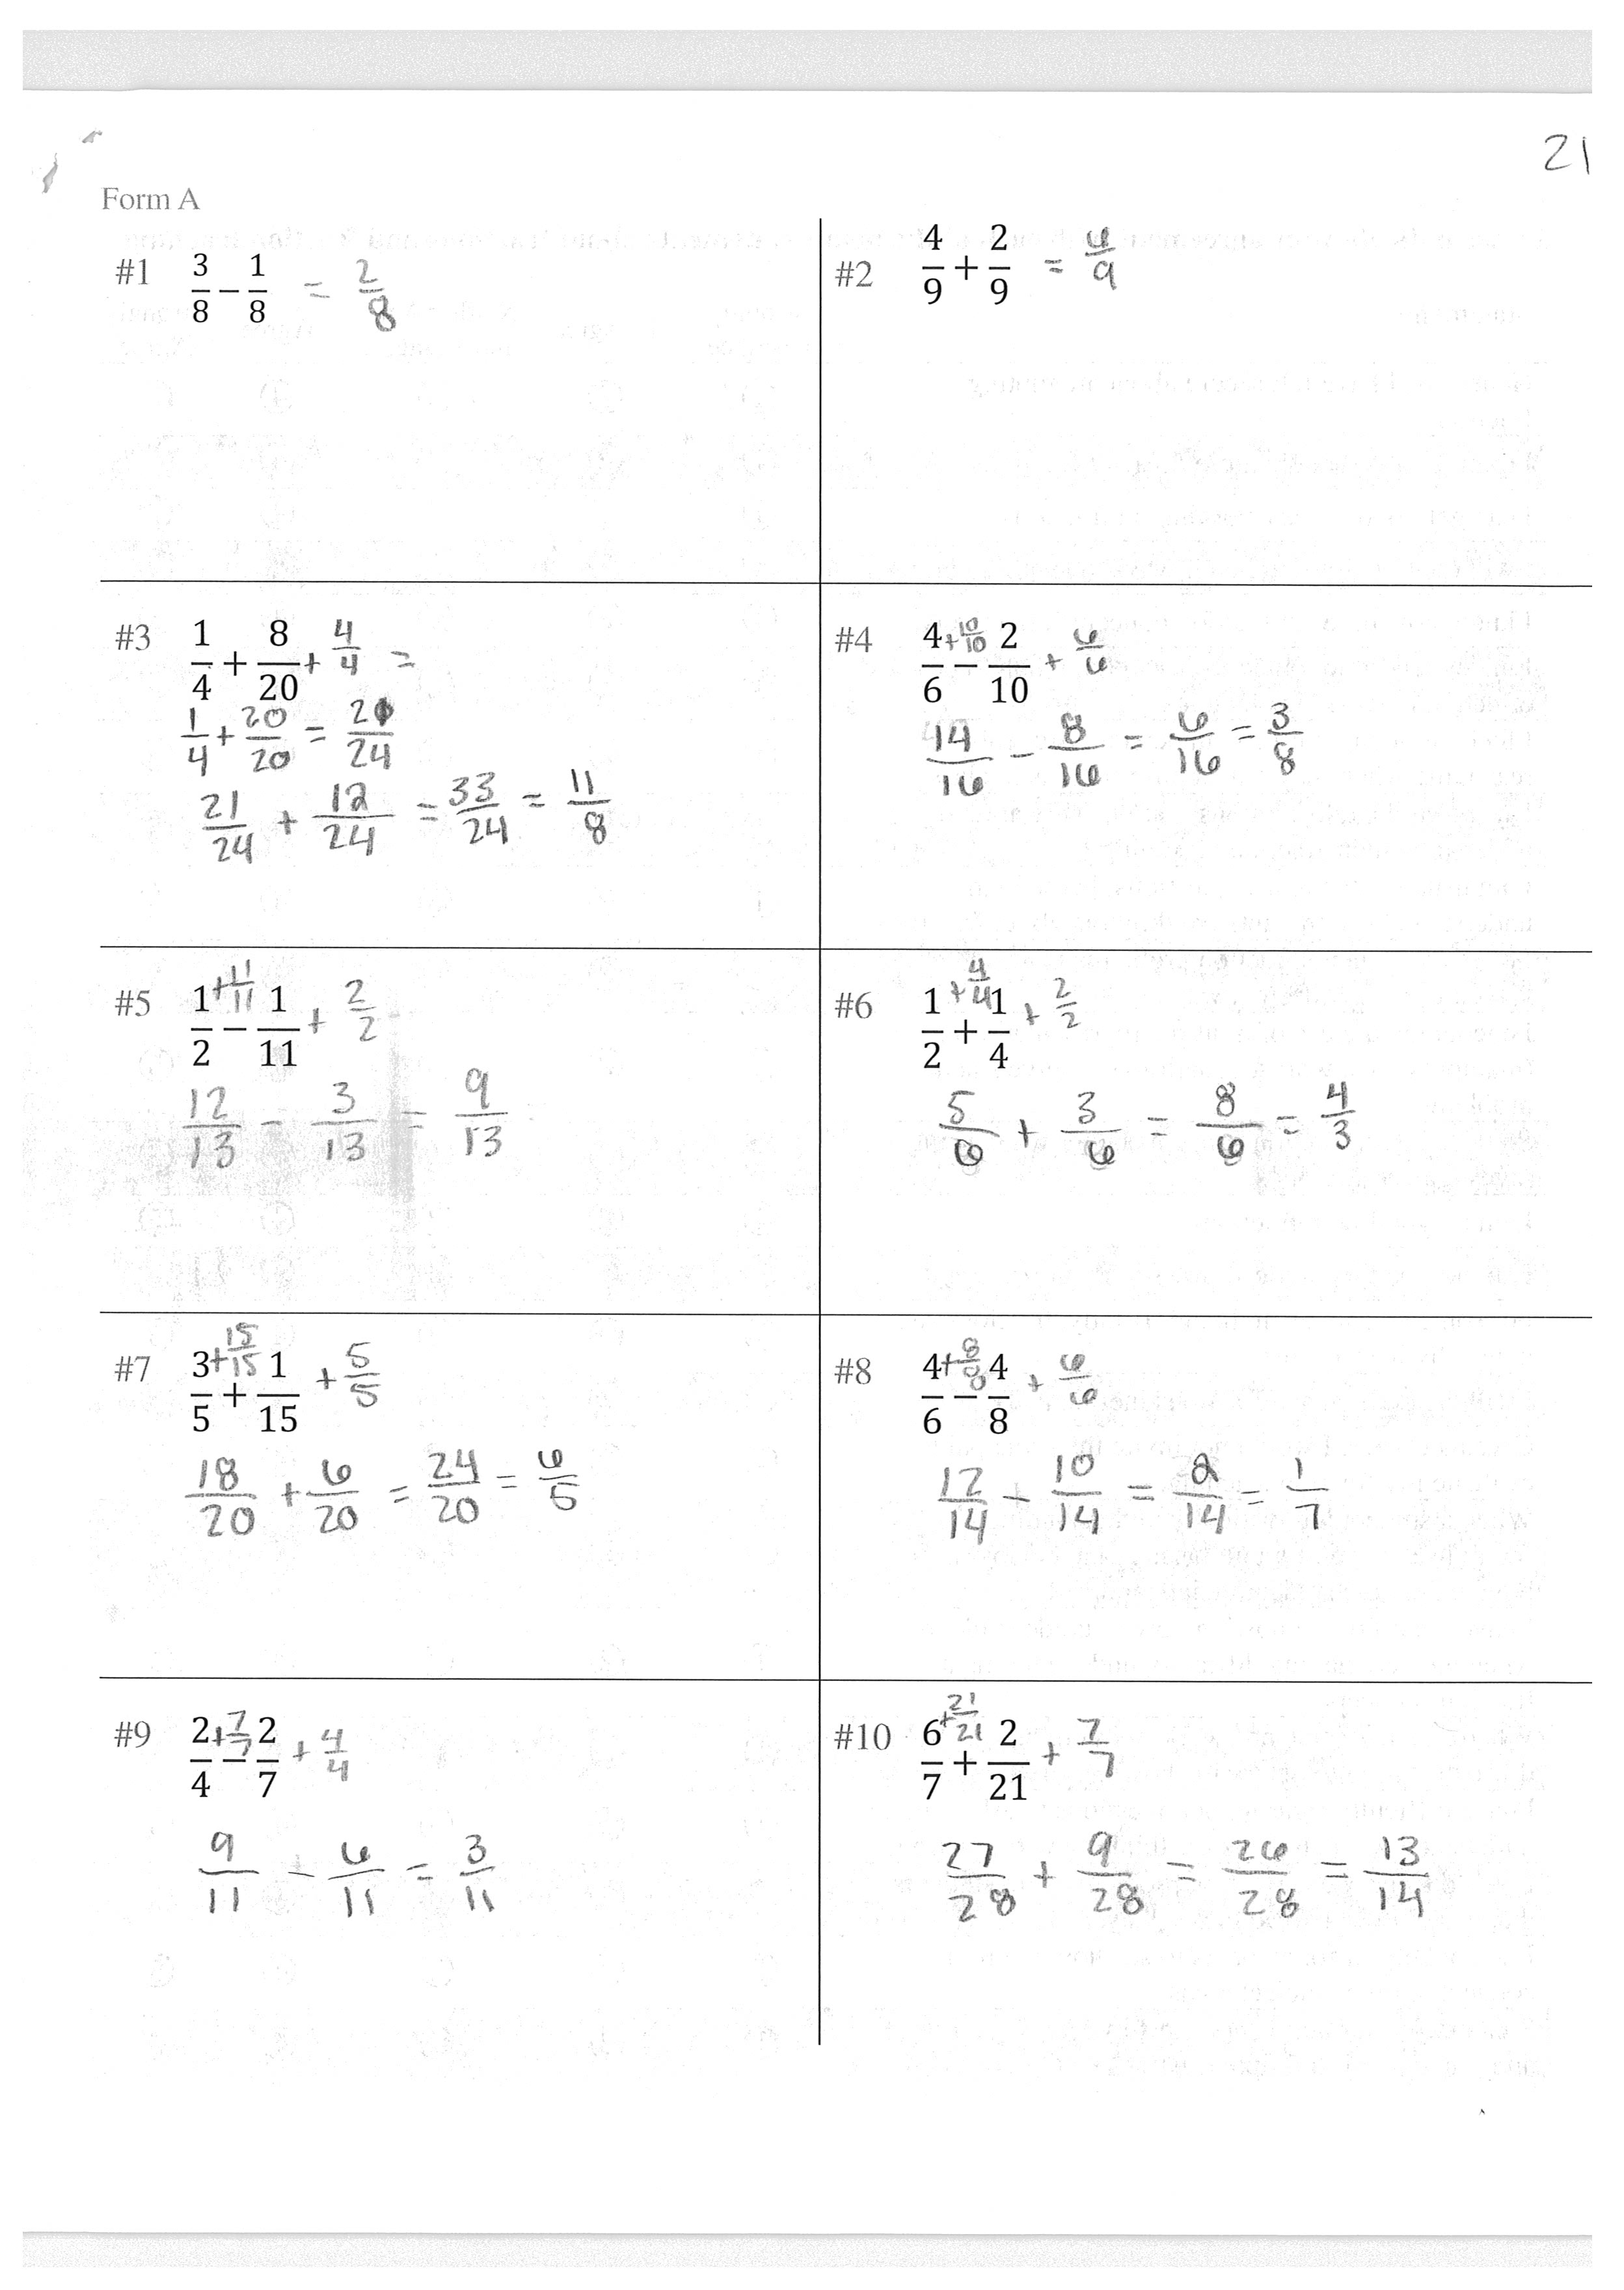 21
Form A
#1 3/8 − 1/8 = 2/8
#2 4/9 + 2/9 = 6/9
#3 1/4 + 8/20 + 4/4 =
1/4 + 20/20 = 21/24
21/24 + 12/24 = 33/24 = 11/8
#4 4/6 + 10/10 − 2/10 + 6/6
14/16 − 8/16 = 6/16 = 3/8
#5 1/2 + 11/11 − 1/11 + 2/2
12/13 − 3/13 = 9/13
#6 1/2 + 4/4 + 1/4 + 2/2
5/6 + 3/6 = 8/6 = 4/3
#7 3/5 + 15/15 + 1/15 + 5/5
18/20 + 6/20 = 24/20 = 6/5
#8 4/6 + 8/8 − 4/8 + 6/6
12/14 − 10/14 = 2/14 = 1/7
#9 2/4 + 7/7 − 2/7 + 4/4
9/11 − 6/11 = 3/11
#10 6/7 + 21/21 + 2/21 + 7/7
27/28 + 9/28 = 26/28 = 13/14